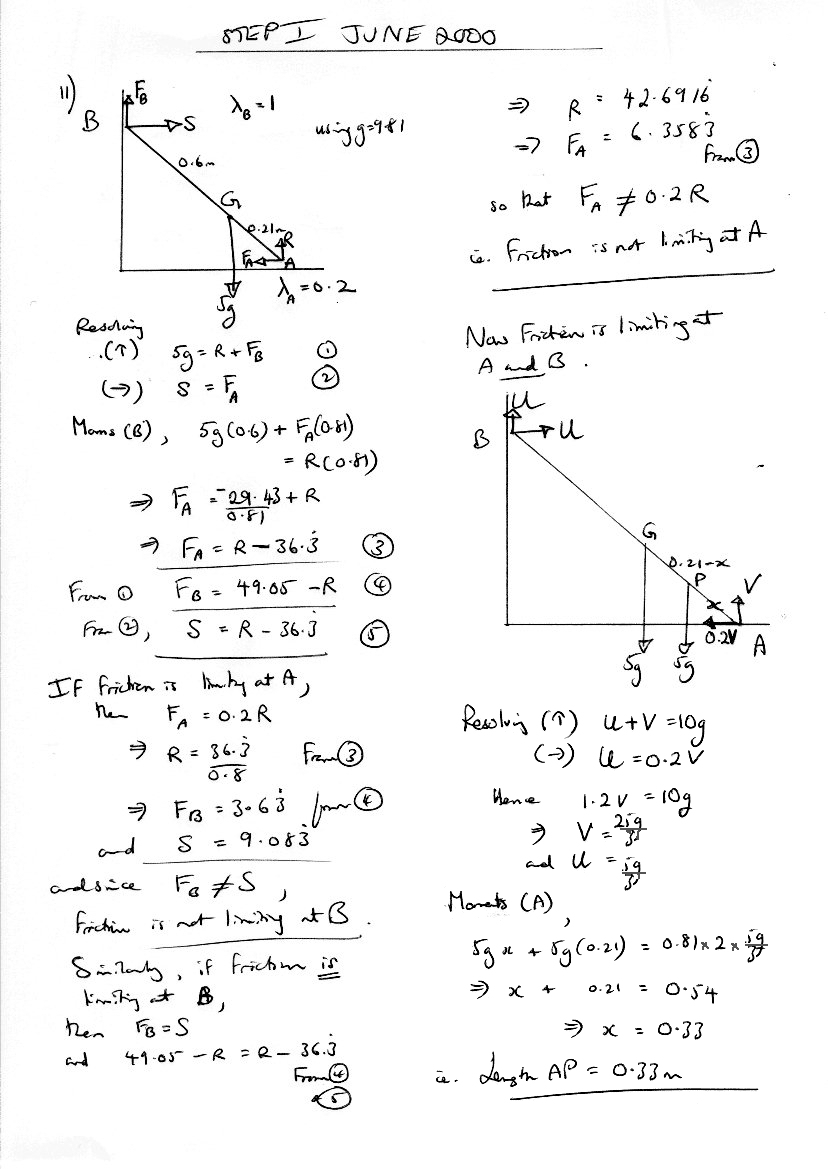 STEP I JUNE 2000
11)
F_B
B
S
λ_B = 1
using g=9.81
0.6m
G
0.21m
R
F_A
A
5g
λ_A = 0.2
Resolving
(↑) 5g = R + F_B ①
(→) S = F_A ②
Moms (B), 5g(0.6) + F_A(0.81)
= R(0.81)
⇒ F_A = -29.43/0.81 + R
⇒ F_A = R - 36.3̇ ③
From ① F_B = 49.05 - R ④
From ②, S = R - 36.3̇ ⑤
If friction is limiting at A,
then F_A = 0.2R
⇒ R = 36.3̇/0.8 From ③
⇒ F_B = 3.63̇ from ④
and S = 9.083̇
and since F_B ≠ S,
friction is not limiting at B.
Similarly, if friction is
limiting at B,
then F_B = S
and 49.05 - R = R - 36.3̇
From ④
& ⑤
⇒ R = 42.6916̇
⇒ F_A = 6.3583̇
From ③
so that F_A ≠ 0.2R
ie. Friction is not limiting at A
Now Friction is limiting at
A and B.
U
B
U
G
0.21-x
P
V
x
0.2V
A
5g
5g
Resolving (↑) U+V = 10g
(→) U = 0.2V
Hence 1.2V = 10g
⇒ V = 25g/3
and U = 5g/3
Moments (A),
5gx + 5g(0.21) = 0.81×2×5g/3
⇒ x + 0.21 = 0.54
⇒ x = 0.33
ie. Length AP = 0.33m